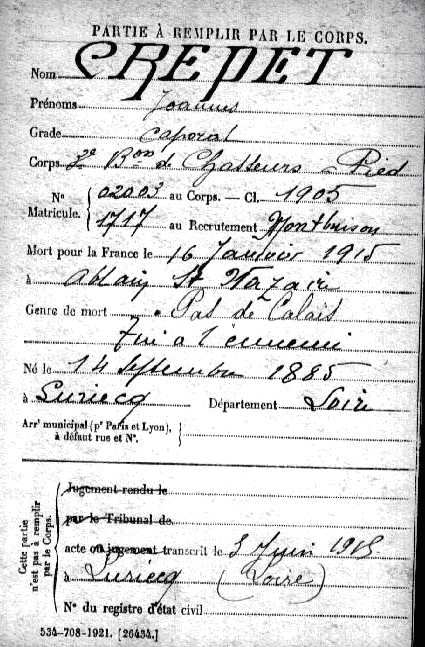 PARTIE À REMPLIR PAR LE CORPS.
Nom CREPET
Prénoms Joannus
Grade Caporal
Corps 3e Bon de Chasseurs à Pied
No 02003 au Corps. — Cl. 1905
Matricule. 1717 au Recrutement Montbrison
Mort pour la France le 16 Janvier 1915
à Ablain St Nazaire
Genre de mort Pas de Calais
Tué à l'ennemi
Né le 14 septembre 1885
à Luriecq Département Loire
Arrt municipal (pr Paris et Lyon),
à défaut rue et No.
Cette partie n'est pas à remplir par le Corps.
Jugement rendu le
par le Tribunal de
acte ou jugement transcrit le 3 Juin 1915
à Luriecq (Loire)
No du registre d'état civil
534-708-1921. [26434.]